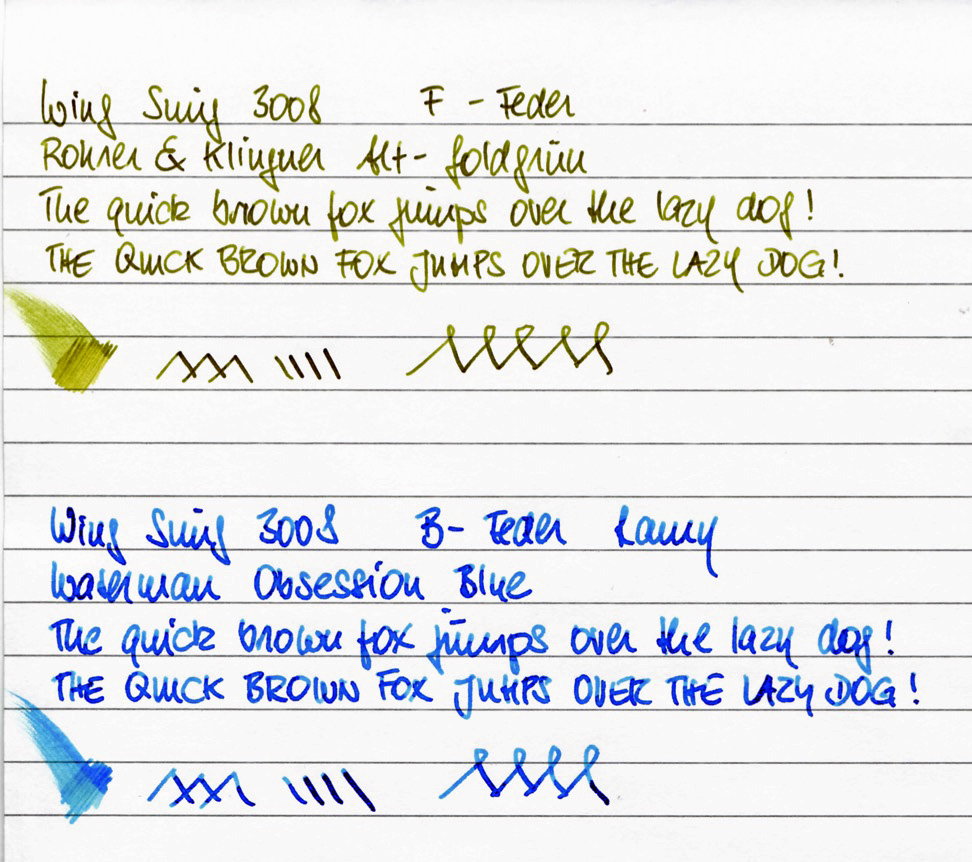 Wing Sung 3008 F - Feder
Rohrer & Klingner Alt-Goldgrün
The quick brown fox jumps over the lazy dog!
THE QUICK BROWN FOX JUMPS OVER THE LAZY DOG!
Wing Sung 3008 B- Feder Lamy
Waterman Obsession Blue
The quick brown fox jumps over the lazy dog!
THE QUICK BROWN FOX JUMPS OVER THE LAZY DOG!